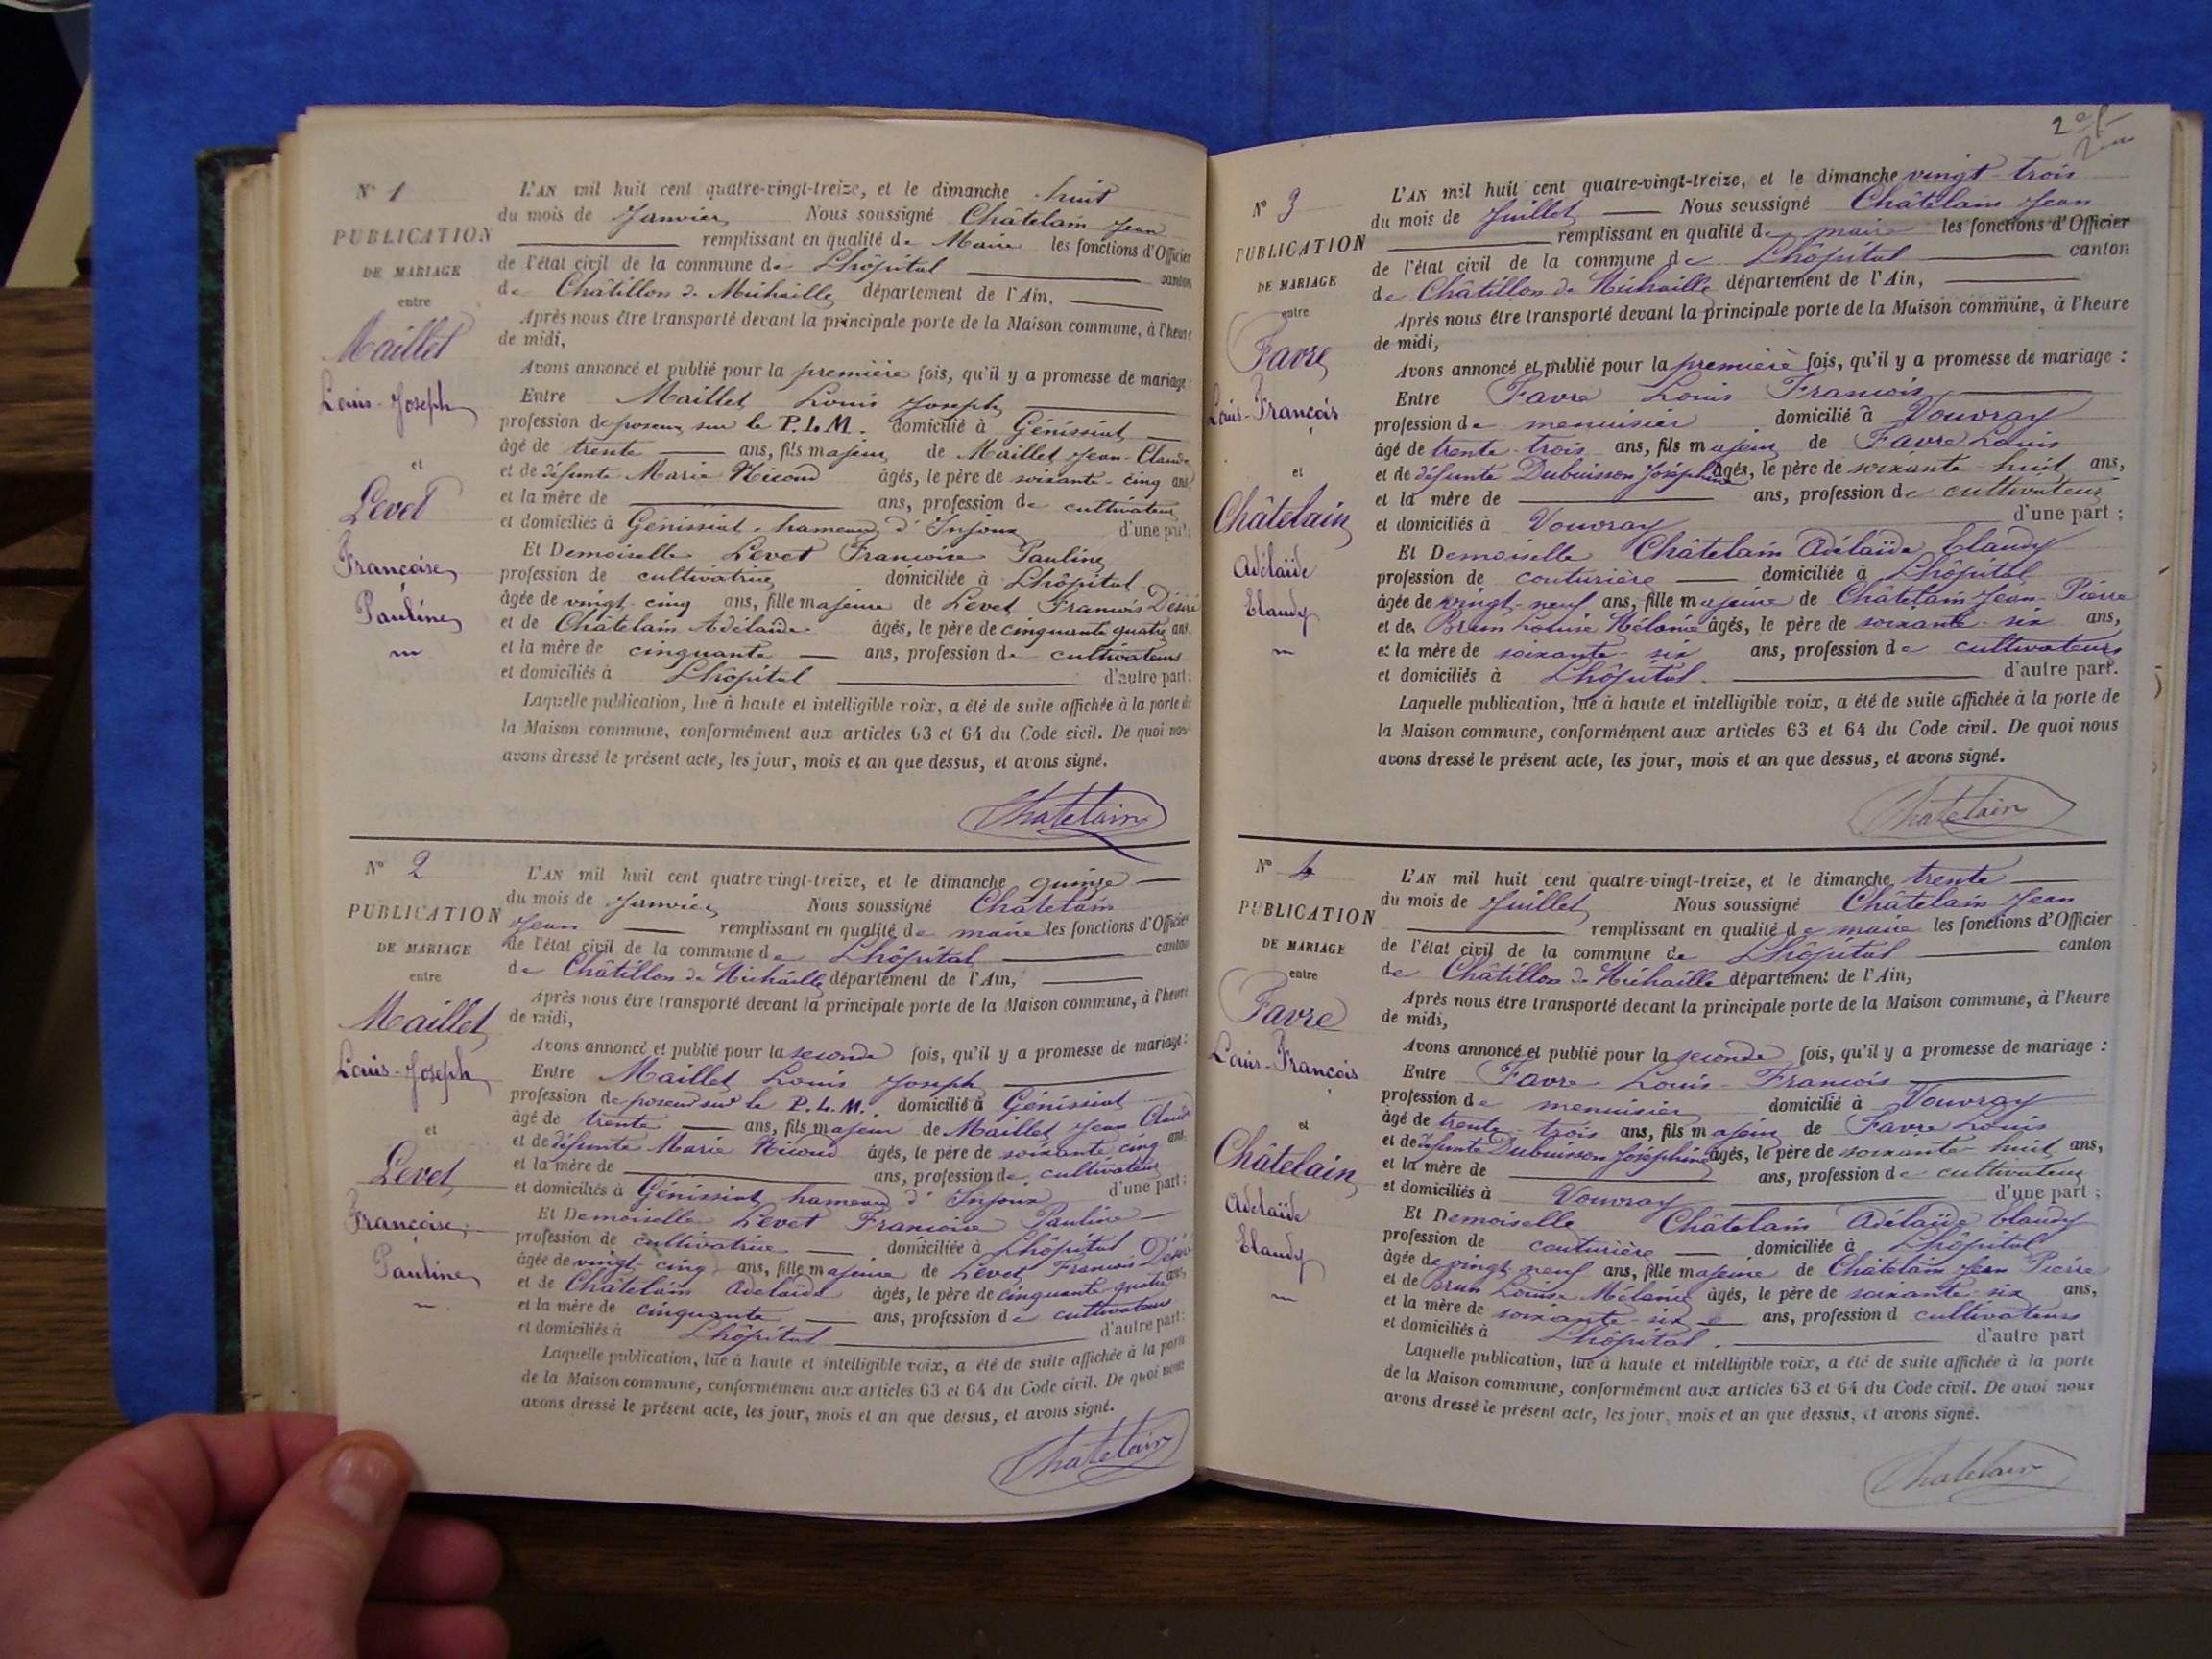 N° 1
PUBLICATION
DE MARIAGE
entre
Maillet
Louis-Joseph
et
Levet
Françoise
Pauline
L'AN mil huit cent quatre-vingt-treize, et le dimanche huit
du mois de Janvier Nous soussigné Châtelain Jean
remplissant en qualité de Maire les fonctions d'Officier
de l'état civil de la commune de Lhôpital canton
de Châtillon de Michaille département de l'Ain,
Après nous être transporté devant la principale porte de la Maison commune, à l'heure
de midi,
Avons annoncé et publié pour la première fois, qu'il y a promesse de mariage :
Entre Maillet Louis Joseph
profession de poseur sur le P.L.M. domicilié à Génissiat
âgé de trente ans, fils majeur de Maillet Jean-Claude
et de défunte Marie Nicoud âgés, le père de soixante-cinq ans,
et la mère de ans, profession de cultivateur
et domiciliés à Génissiat hameau d'Injoux d'une part;
Et Demoiselle Levet Françoise Pauline
profession de cultivatrice domiciliée à Lhôpital
âgée de vingt-cinq ans, fille majeure de Levet François Désiré
et de Châtelain Adélaïde âgés, le père de cinquante quatre ans,
et la mère de cinquante ans, profession de cultivateurs
et domiciliés à Lhôpital d'autre part;
Laquelle publication, lue à haute et intelligible voix, a été de suite affichée à la porte de
la Maison commune, conformément aux articles 63 et 64 du Code civil. De quoi nous
avons dressé le présent acte, les jour, mois et an que dessus, et avons signé.
Chatelain
N° 2
PUBLICATION
DE MARIAGE
entre
Maillet
Louis-Joseph
et
Levet
Françoise
Pauline
L'AN mil huit cent quatre-vingt-treize, et le dimanche quinze
du mois de Janvier Nous soussigné Châtelain
Jean remplissant en qualité de maire les fonctions d'Officier
de l'état civil de la commune de Lhôpital canton
de Châtillon de Michaille département de l'Ain,
Après nous être transporté devant la principale porte de la Maison commune, à l'heure
de midi,
Avons annoncé et publié pour la seconde fois, qu'il y a promesse de mariage :
Entre Maillet Louis Joseph
profession de poseur sur le P.L.M. domicilié à Génissiat
âgé de trente ans, fils majeur de Maillet Jean Claude
et de défunte Marie Nicoud âgés, le père de soixante cinq ans,
et la mère de ans, profession de cultivateur
et domiciliés à Génissiat hameau d'Injoux d'une part;
Et Demoiselle Levet Françoise Pauline
profession de cultivatrice domiciliée à Lhôpital
âgée de vingt-cinq ans, fille majeure de Levet François Désiré
et de Châtelain Adelaïde âgés, le père de cinquante quatre ans,
et la mère de cinquante ans, profession de cultivateurs
et domiciliés à Lhôpital d'autre part;
Laquelle publication, lue à haute et intelligible voix, a été de suite affichée à la porte
de la Maison commune, conformément aux articles 63 et 64 du Code civil. De quoi nous
avons dressé le présent acte, les jour, mois et an que dessus, et avons signé.
Chatelain
N° 3
PUBLICATION
DE MARIAGE
entre
Favre
Louis-François
et
Châtelain
Adélaïde
Claudy
L'AN mil huit cent quatre-vingt-treize, et le dimanche vingt-trois
du mois de Juillet Nous soussigné Châtelain Jean
remplissant en qualité de maire les fonctions d'Officier
de l'état civil de la commune de Lhôpital canton
de Châtillon de Michaille département de l'Ain,
Après nous être transporté devant la principale porte de la Maison commune, à l'heure
de midi,
Avons annoncé et publié pour la première fois, qu'il y a promesse de mariage :
Entre Favre Louis François
profession de menuisier domicilié à Vouvray
âgé de trente-trois ans, fils majeur de Favre Louis
et de défunte Dubuisson Joséphine âgés, le père de soixante-huit ans,
et la mère de ans, profession de cultivateur
et domiciliés à Vouvray d'une part;
Et Demoiselle Châtelain Adélaïde Claudy
profession de couturière domiciliée à Lhôpital
âgée de vingt-neuf ans, fille majeure de Châtelain Jean-Pierre
et de Brun Louise Mélanie âgés, le père de soixante-six ans,
et la mère de soixante-six ans, profession de cultivateurs
et domiciliés à Lhôpital. d'autre part.
Laquelle publication, lue à haute et intelligible voix, a été de suite affichée à la porte de
la Maison commune, conformément aux articles 63 et 64 du Code civil. De quoi nous
avons dressé le présent acte, les jour, mois et an que dessus, et avons signé.
Chatelain
N° 4
PUBLICATION
DE MARIAGE
entre
Favre
Louis-François
et
Châtelain
Adelaïde
Claudy
L'AN mil huit cent quatre-vingt-treize, et le dimanche trente
du mois de Juillet Nous soussigné Châtelain Jean
remplissant en qualité de maire les fonctions d'Officier
de l'état civil de la commune de Lhôpital canton
de Châtillon de Michaille département de l'Ain,
Après nous être transporté devant la principale porte de la Maison commune, à l'heure
de midi,
Avons annoncé et publié pour la seconde fois, qu'il y a promesse de mariage :
Entre Favre Louis-François
profession de menuisier domicilié à Vouvray
âgé de trente-trois ans, fils majeur de Favre Louis
et de défunte Dubuisson Joséphine âgés, le père de soixante-huit ans,
et la mère de ans, profession de cultivateur
et domiciliés à Vouvray d'une part;
Et Demoiselle Châtelain Adélaïde Claudy
profession de couturière domiciliée à Lhôpital
âgée de vingt neuf ans, fille majeure de Châtelain Jean Pierre
et de Brun Louise Mélanie âgés, le père de soixante-six ans,
et la mère de soixante-six ans, profession d cultivateurs
et domiciliés à Lhôpital. d'autre part
Laquelle publication, lue à haute et intelligible voix, a été de suite affichée à la porte
de la Maison commune, conformément aux articles 63 et 64 du Code civil. De quoi nous
avons dressé le présent acte, les jour, mois et an que dessus, et avons signé.
Chatelain